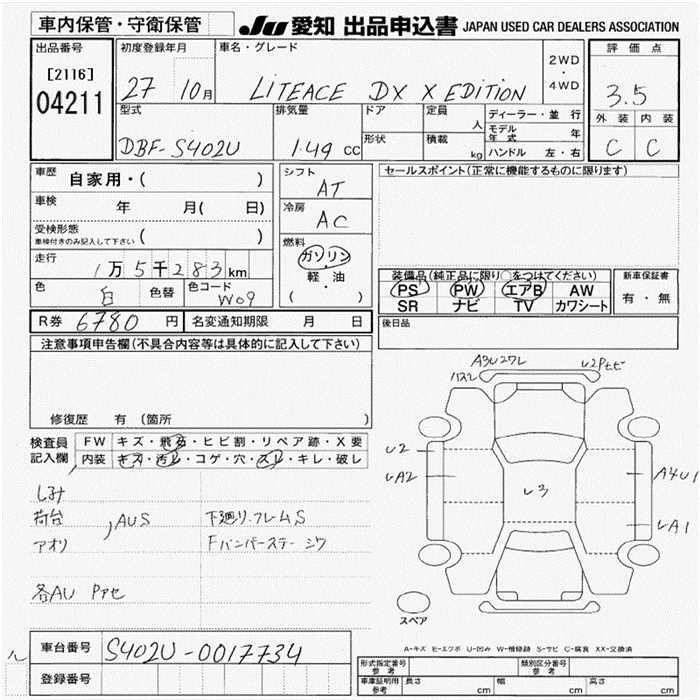 車内保管・守衛保管
JU 愛知 出品申込書 JAPAN USED CAR DEALERS ASSOCIATION
出品番号
[2116]
04211
初度登録年月
27 10月
車名・グレード
LITEACE DX X EDITION
2WD
・
4WD
評価点
3.5
外装 内装
C C
型式
DBF-S402U
排気量
1.49 CC
ドア
形状
定員
人
積載
kg
ディーラー・並行
モデル年式 年
ハンドル 左・右
車歴 自家用・( )
車検 年 月( 日)
受検形態
車検付きのみ記入して下さい ( )
走行 1万5千283km
色 白 色替 色コード W09
シフト
AT
冷房
AC
燃料
ガソリン
・
軽・油
( )
セールスポイント(正常に機能するものに限ります)
装備品(純正品に限り○をつけてください)
PS PW エアB AW
SR ナビ TV カワシート
新車保証書
有・無
後日品
R券 6780 円 名変通知期限 月 日
注意事項申告欄(不具合内容等は具体的に記入して下さい)
修復歴 有 (箇所 )
検査員
記入欄
FW キズ・飛石・ヒビ割・リペア跡・X要
内装 キズ・汚レ・コゲ・穴・スレ・キレ・破レ
しみ
荷台
アオリ
AUS
下廻り.フレームS
Fバンパーステー シワ
各AU
A3U2
U2
A2
3
A4U1
A1
スペア
A-キズ E-エクボ U-凹み W-補修跡 S-サビ C-腐食 XX-交換済
車台番号 S402U-0017734
登録番号
形式指定番号
参考
類別区分番号
参考
車庫証明用
参考
長さ cm 幅 cm 高さ cm